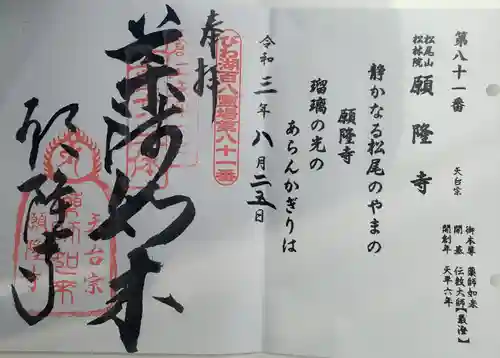 第八十一番
松尾山
松林院
願隆寺
天台宗
御本尊 薬師如来
開基 伝教大師【最澄】
開創年 天平六年
静かなる松尾のやまの
願隆寺
瑠璃の光の
あらんかぎりは
令和三年八月二五日
びわ湖百八霊場第八十一番
奉拝
薬師如来
願隆寺
天台宗
薬師如来
願隆寺